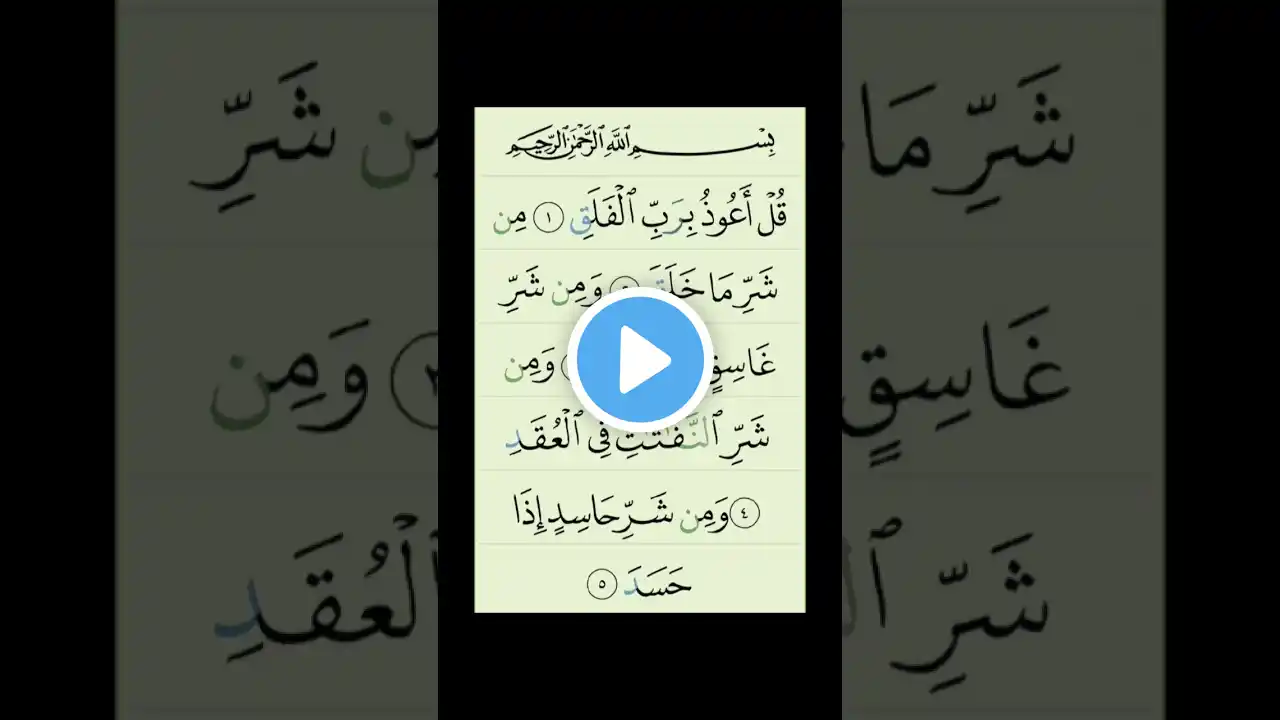 بِسْمِ ٱللَّهِ ٱلرَّحْمَٰنِ ٱلرَّحِيمِ
قُلْ أَعُوذُ بِرَبِّ ٱلْفَلَقِ ١ مِن
شَرِّ مَا خَلَقَ وَمِن شَرِّ
غَاسِقٍ وَمِن
شَرِّ ٱلنَّفَّٰثَٰتِ فِى ٱلْعُقَدِ
٤ وَمِن شَرِّ حَاسِدٍ إِذَا
حَسَدَ ٥